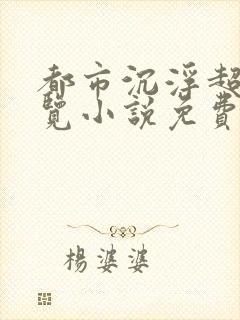 都市沉浮超
覽小說免費
楊婆婆